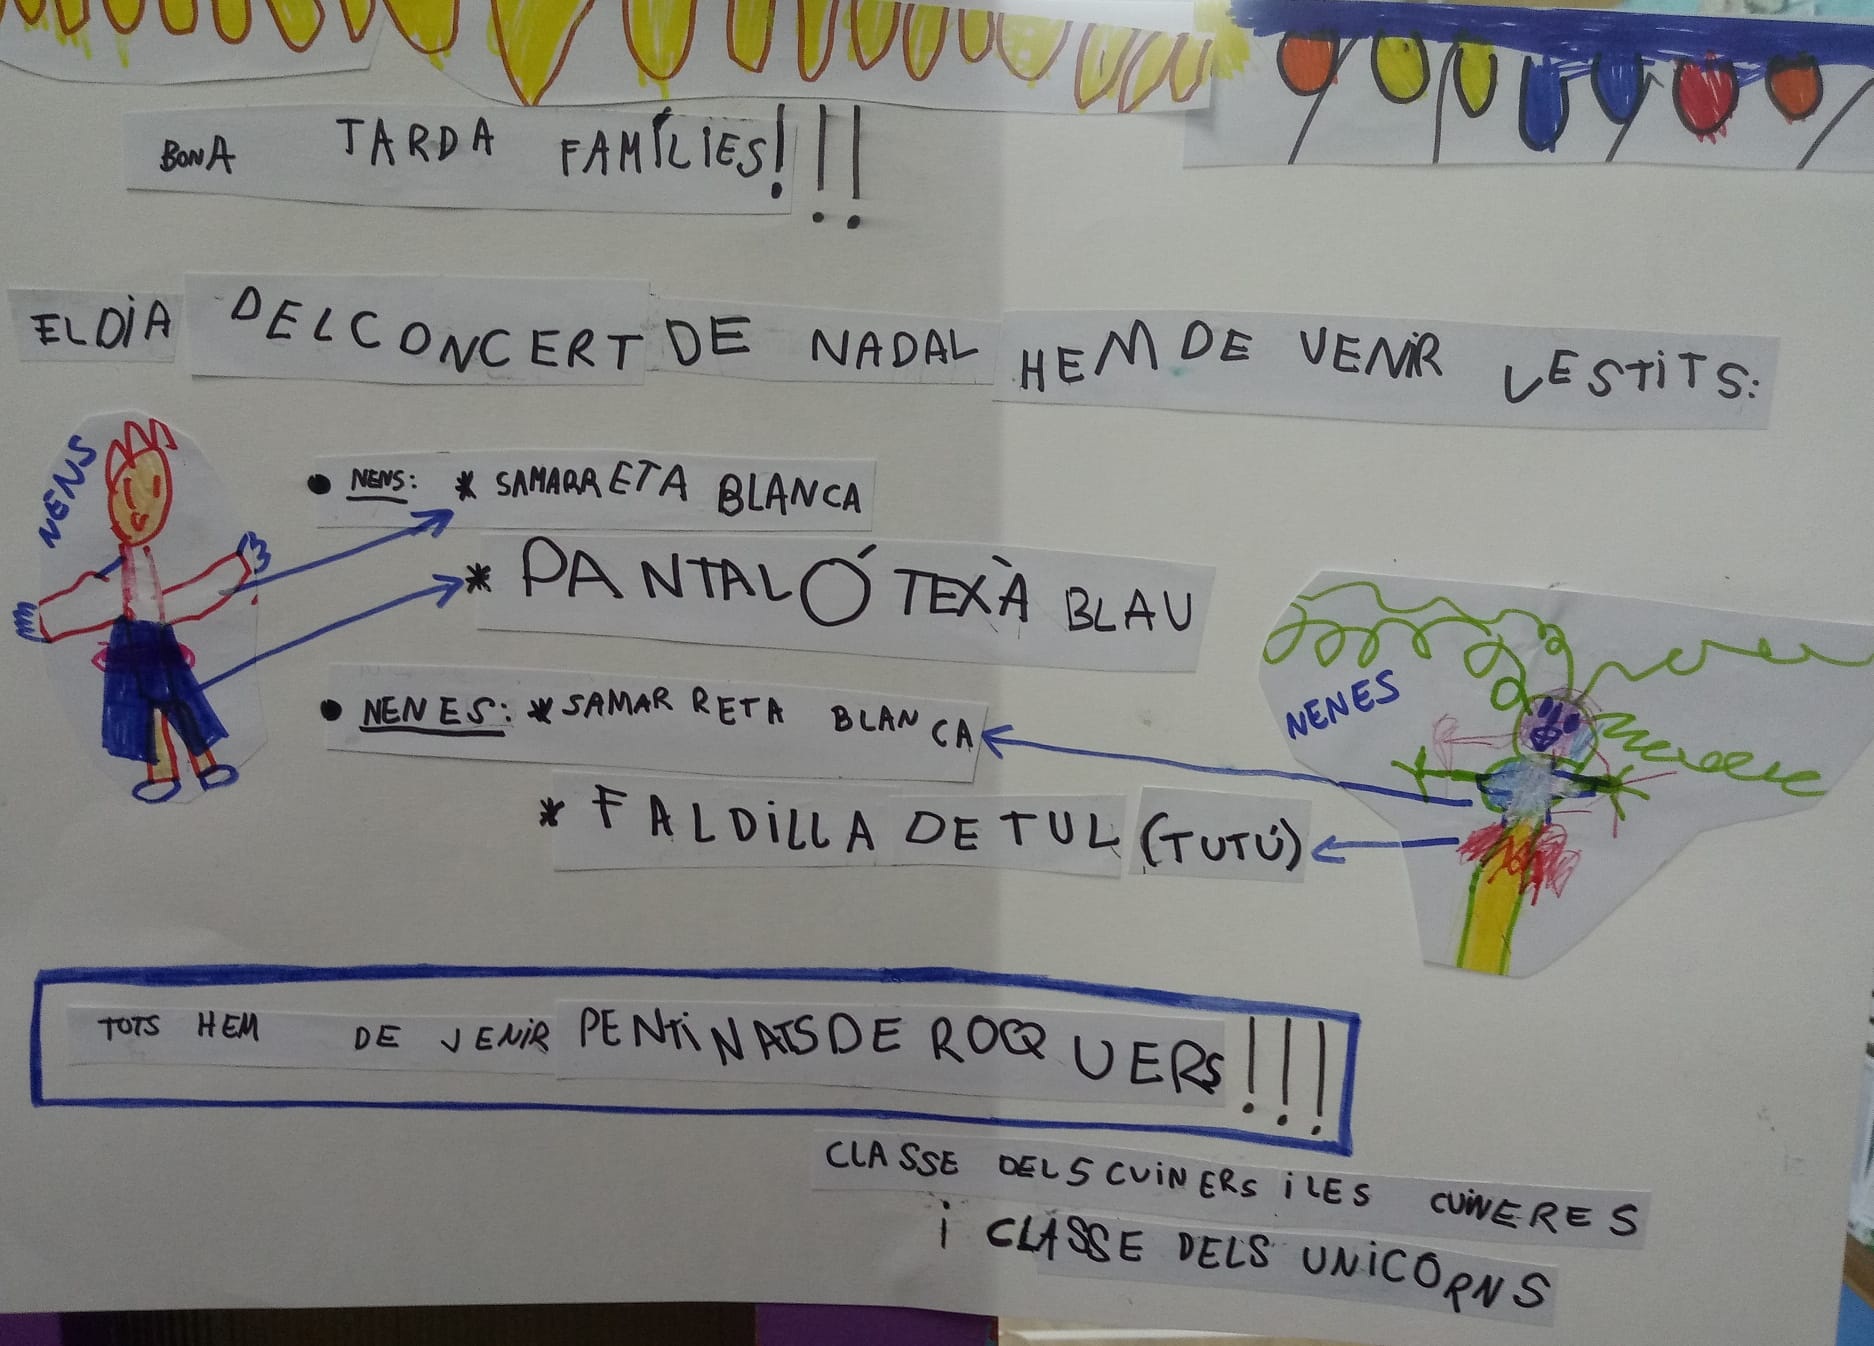 BONA TARDA FAMÍLIES!!!
EL DIA DEL CONCERT DE NADAL HEM DE VENIR VESTITS:
NENS
• NENS: * SAMARRETA BLANCA
* PANTALÓ TEXÀ BLAU
• NENES: * SAMARRETA BLANCA
NENES
* FALDILLA DE TUL (TUTÚ)
TOTS HEM DE VENIR PENTINATS DE ROQUERS!!!
CLASSE DELS CUINERS I LES CUINERES
I CLASSE DELS UNICORNS